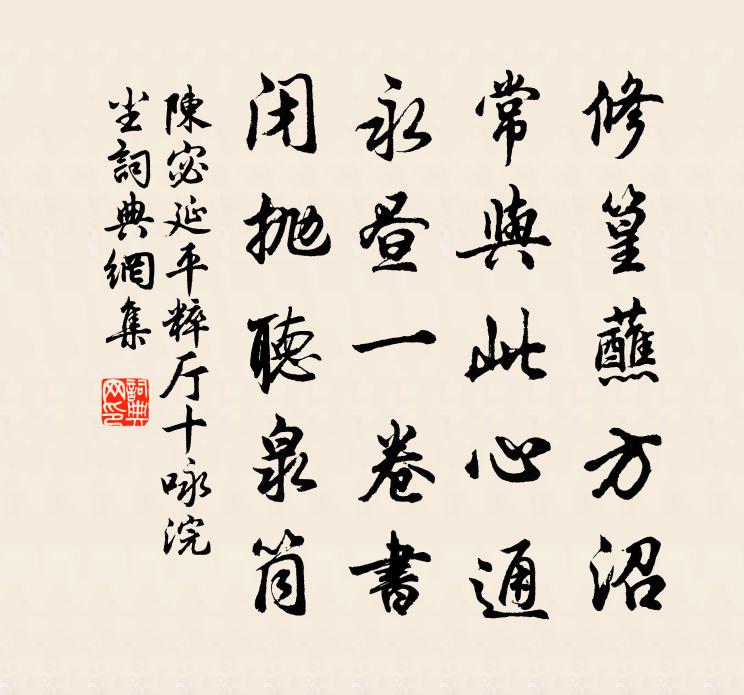 修篁蘸方沼
常與此心通
永晝一卷書
闭抛聽泉筒
陳宓延平粹厅十咏浣
坐詞典網集
詞典網印